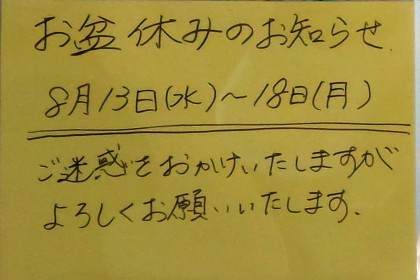 お盆休みのお知らせ.
8月13日(水)～18日(月)
ご迷惑をおかけいたしますが
よろしくお願いいたします.